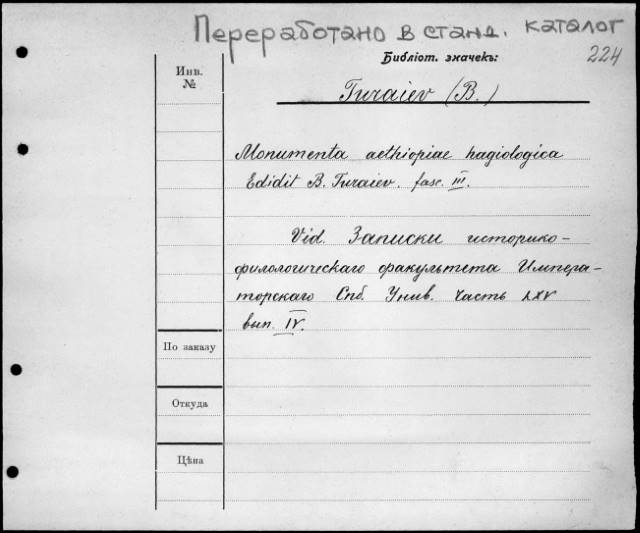 Переработано в станд. каталог
Библіот. значекъ:
224
Инв.
№
Turaiev (B.)
Monumenta aethiopiae hagiologica
Edidit B. Turaiev. fasc. III.
Vid. Записки историко-
филологическаго факультета Импера-
торскаго Спб. Унив. Часть LXV
вып. IV.
По заказу
Откуда
Цѣна